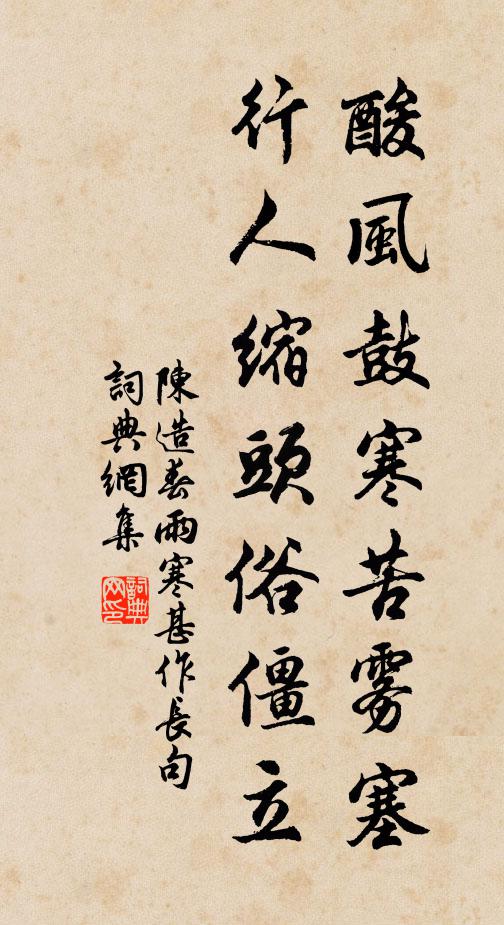 酸風鼓寒苦雾塞
行人缩頭俗僵立
陳造春雨寒甚作長句
詞典網集
詞典网印